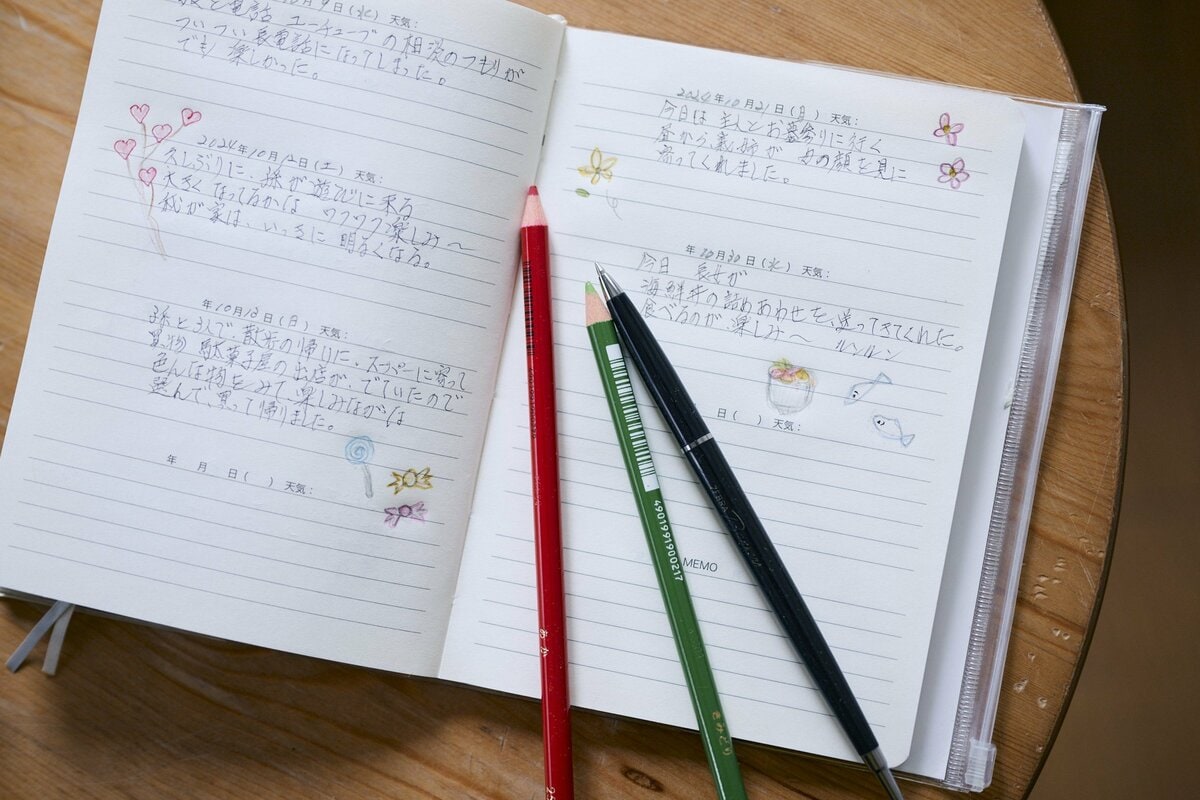 10月9日(水) 天気:
と電話 ユーチューブの相談のつもりが
ついつい長電話になってしまった。
でも 楽しかった。
2024年10月12日(土) 天気:
久しぶりに、孫が遊びに来る
大きくなってるかな ワクワク楽しみ〜
我が家は、いっきに 明るくなる。
年10月13日(日) 天気:
孫と3人で 散歩の帰りに、スーパーに寄って
買物 駄菓子屋のお店が、でていたので
色んな物をみて、楽しみながら
選んで、買って帰りました。
年 月 日( ) 天気:
2024年10月21日(月) 天気:
今日は 主人とお墓参りに行く
昼から、義姉が 母の顔を見に
寄ってくれました。
年10月30日(水) 天気:
今日 長女が
海鮮丼の詰めあわせを、送ってきてくれた。
食べるのが 楽しみ〜 ルンルン
日( ) 天気:
MEMO
あか
4901991900217
きみどり
ZEBRA